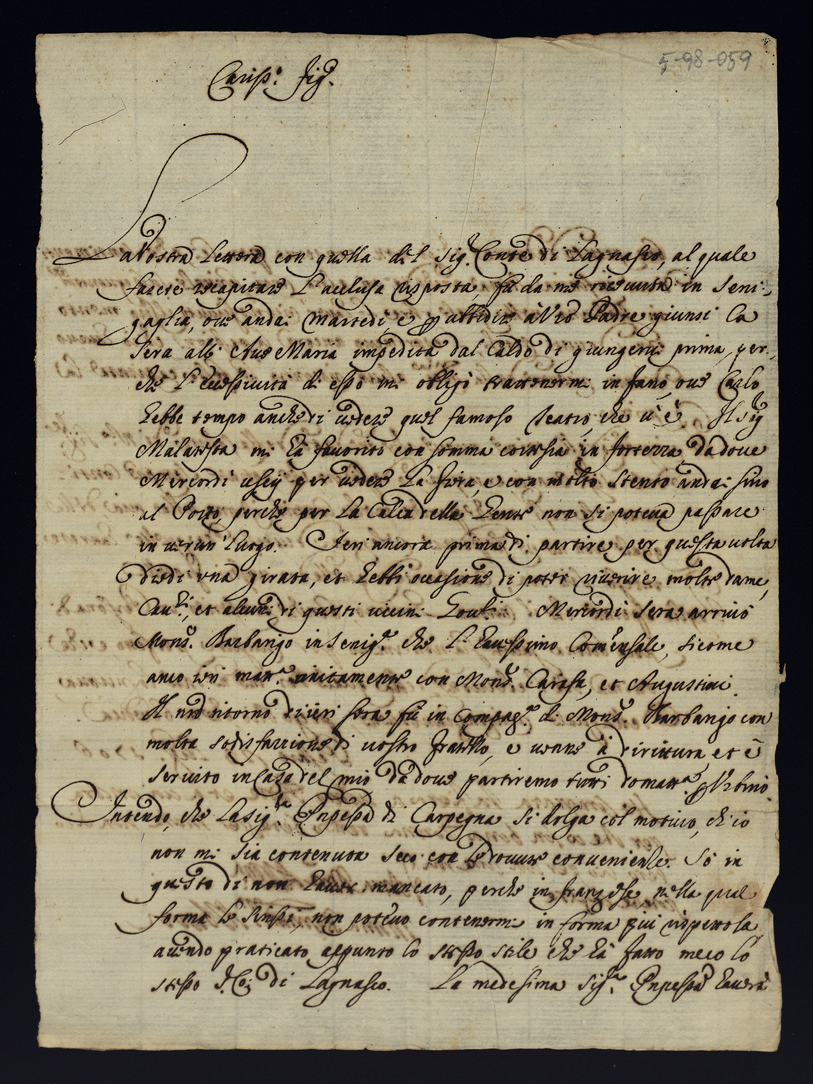 5-98-059
Cariss.ª Fig.ª
La Vostra lettera con quella del Sig.r Conte di Lagnasco, al quale
farete recapitare l'acclusa risposta, fù da me ricevuta in Seni-
gaglia, ove andai Martedì, e p altidire Padre giunsi la
sera all'Ave Maria impedita dal Caldo di giungervi prima, per-
che l'eccessività di esso mi obligò trattenermi in fano, ove Carlo
hebbe tempo anche di vedere quel famoso Teatro, che v'è. Il Sig.r
Malatesta mi hà favorito con somma cortesia in fortezza da dove
Mercordì uscij per vedere la fiera, e con molto stento andai sino
al Porto, perche per la Calca della Gente non si poteva passare
in verun luogo. Ieri ancora prima di partire per questa volta
diedi una girata, et hebbi occasione di poter riverire molte dame,
Cav.ri, et alcuni di questi vicini Gov.ri. Mercordì sera arrivò
Mons.r Barbarigo in Senig.ª che l'havessimo Comensale, sicome
anco ieri matt.ª unitamente con Mons.r Carafa, et Augustini.
Il nr̃o ritorno di ieri sera fù in Compag.ª di Mons.r Barbarigo con
molta sodisfazzione di vostro fratello, e venne à dirittura, et è
servito in Casa del mio da dove partiremo tutti domatt.ª p Urbino.
Intendo, che la Sig.ra Pnpessa di Carpegna si dolga col motivo, ch'io
non mi sia contenuta seco con le dovute convenienze. Sò in
questo di non haver mancato, perche in franzese, nella qual
forma le scrissi, non potevo contenermi in forma più rispettosa
avendo praticato appunto lo stesso stile che hà fatto meco lo
stesso S. Co: di Lagnasco. La medesima Sig.ra Pnpessa haverà